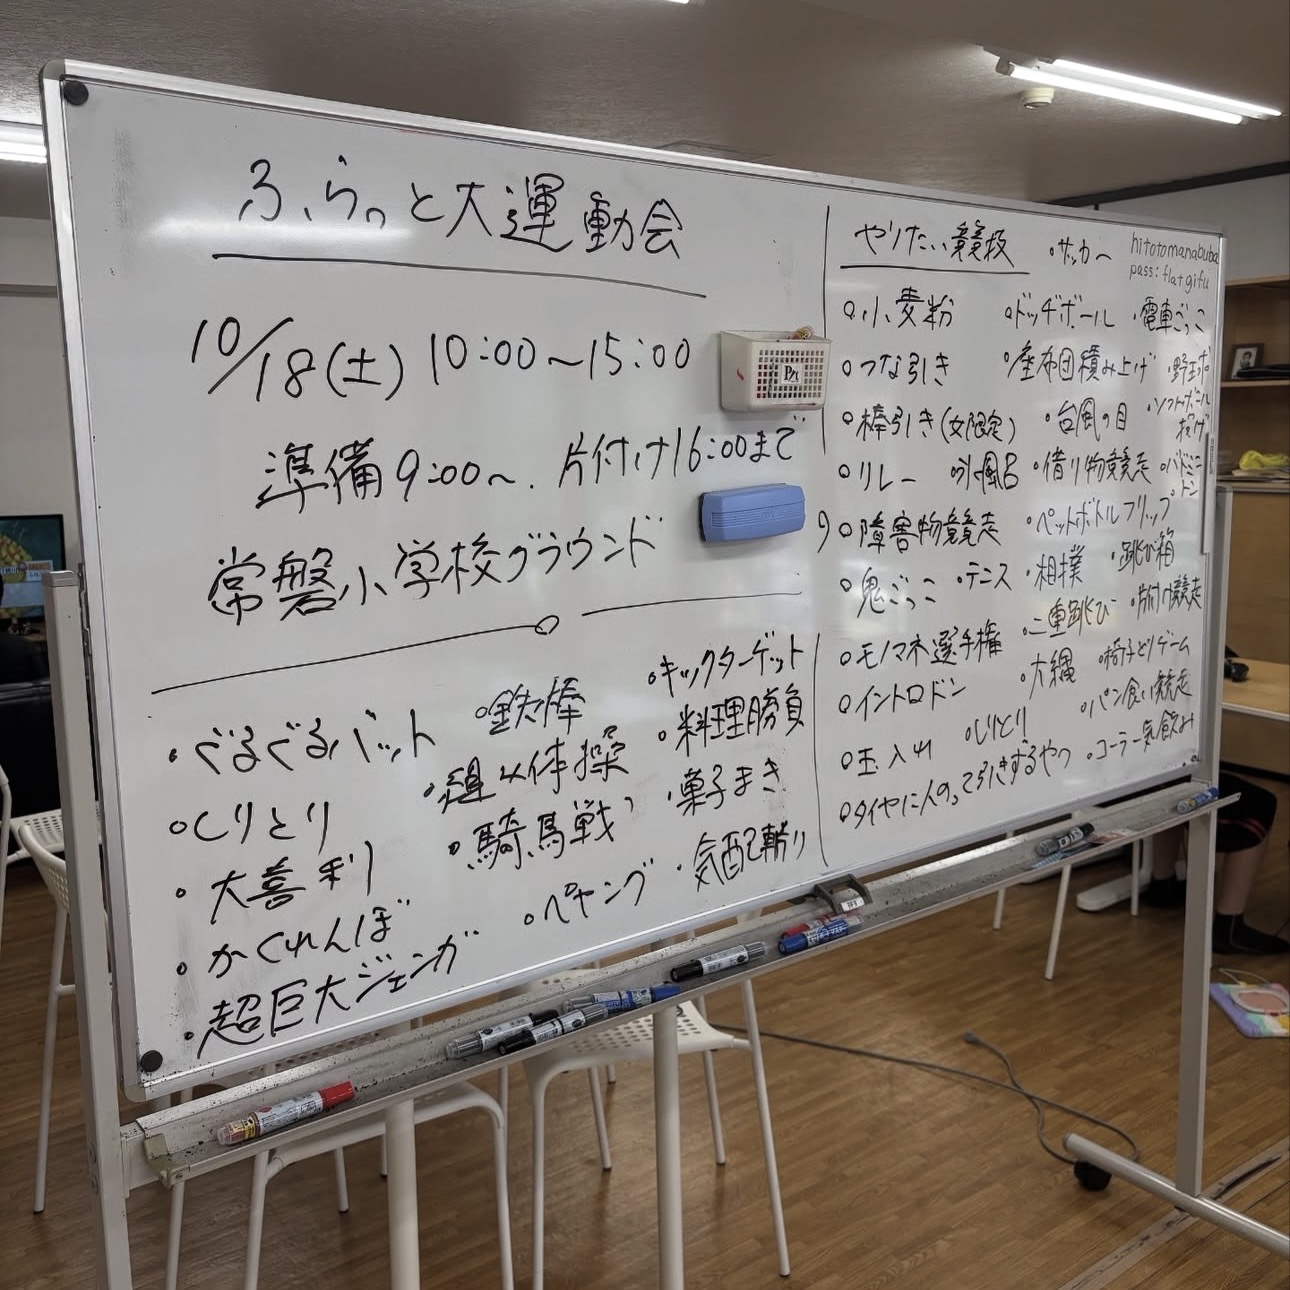 ふらっと大運動会
10/18(土) 10:00〜15:00
準備9:00〜. 片付け16:00まで
常磐小学校グラウンド
・ぐるぐるバット
○しりとり
・大喜利
・かくれんぼ
・超巨大ジェンガ
○鉄棒
・組み体操
・騎馬戦
○ペヤング
・キックターゲット
・料理勝負
・菓子まき
・気配斬り
やりたい競技
○サッカー
hitotomanabuba
pass: flatgifu
○小麦粉
○つな引き
○棒引き(女限定)
○リレー
○障害物競走
○鬼ごっこ
○モノマネ選手権
○イントロドン
○玉入れ
○タイヤに人のって引きずるやつ
○ドッヂボール
○座布団積み上げ
・台風の目
・借り物競走
・ペットボトルフリップ
・テニス
・相撲
・二重跳び
・大縄
○しりとり
・電車ごっこ
・ソフトボール投げ
・バドミントン
・跳び箱
・片付け競走
・椅子とりゲーム
・パン食い競走
・コーラ一気飲み